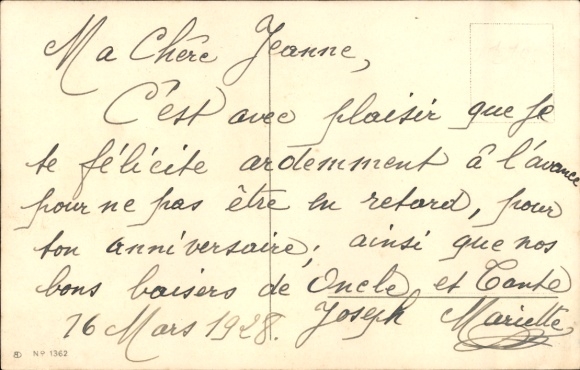 Ma Chère Jeanne,
C'est avec plaisir que je
te félicite ardemment â l'avance
pour ne pas être en retard, pour
ton anniversaire; ainsi que nos
bons baisers de Oncle et Tante
16 Mars 1928. Joseph Mariette
Nº 1362